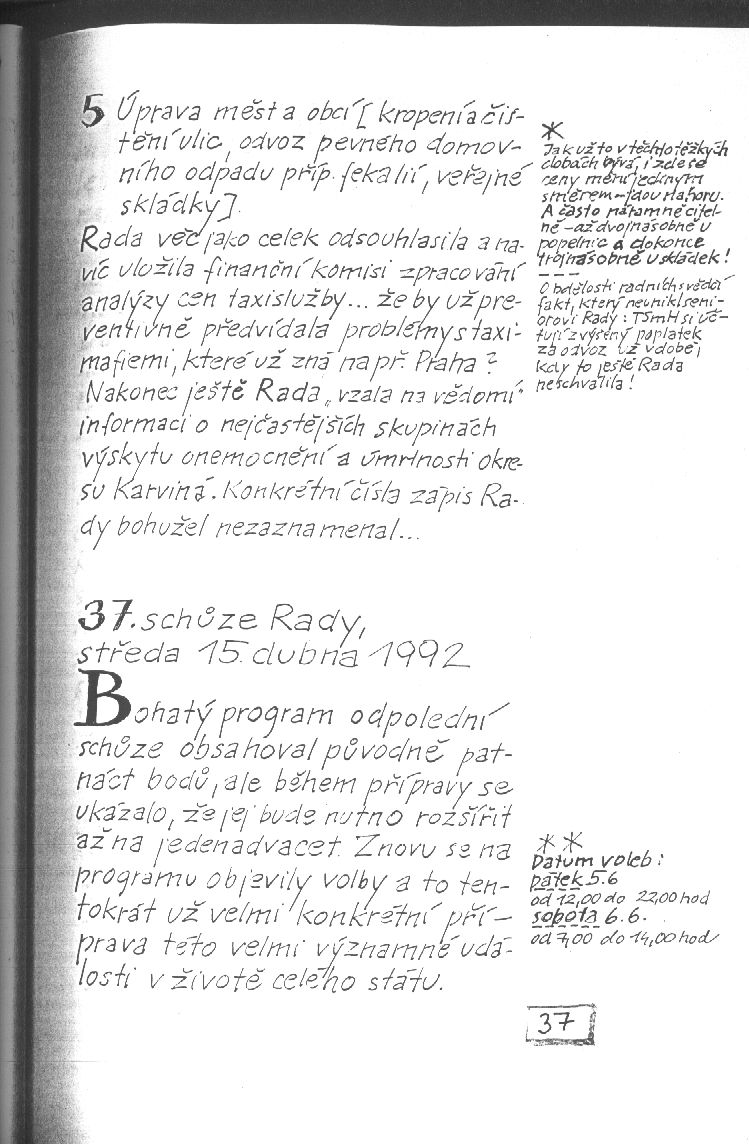 5 Úprava měst a obcí [kropení a čiš-
tění ulic, odvoz pevného domov-
ního odpadu příp. fekalií, veřejné
skládky].
Rada věc jako celek odsouhlasila a na-
víc uložila finanční komisi zpracování
analýzy cen taxislužby... že by už pre-
ventivně předvídala problémy s taxi-
mafiemi, které už zná např. Praha?
Nakonec ještě Rada „vzala na vědomí“
informaci o nejčastějších skupinách
výskytu onemocnění a úmrtnosti okre-
su Karviná. Konkrétní čísla zápis Ra-
dy bohužel nezaznamenal...
*
Jak už to v těchto těžkých
dobách bývá, i zde se
ceny mění jediným
směrem – jdou nahoru.
A často náramně citel-
ně – až dvojnásobně u
popelnic a dokonce
trojnásobně u skládek!
O bdělosti radních svědčí
fakt, který neunikl seni-
orovi Rady: TSmH si úč-
tují zvýšený poplatek
za odvoz už v době,
kdy to ještě Rada
neschválila!
37. schůze Rady,
středa 15. dubna 1992
Bohatý program odpolední
schůze obsahoval původně pat-
náct bodů, ale během přípravy se
ukázalo, že jej bude nutno rozšířit
až na jedenadvacet. Znovu se na
programu objevily volby a to ten-
tokrát už velmi konkrétní pří-
prava této velmi významné udá-
losti v životě celého státu.
**
Datum voleb:
pátek 5.6
od 12,00 do 22,00 hod
sobota 6.6.
od 7,00 do 14,00 hod
37